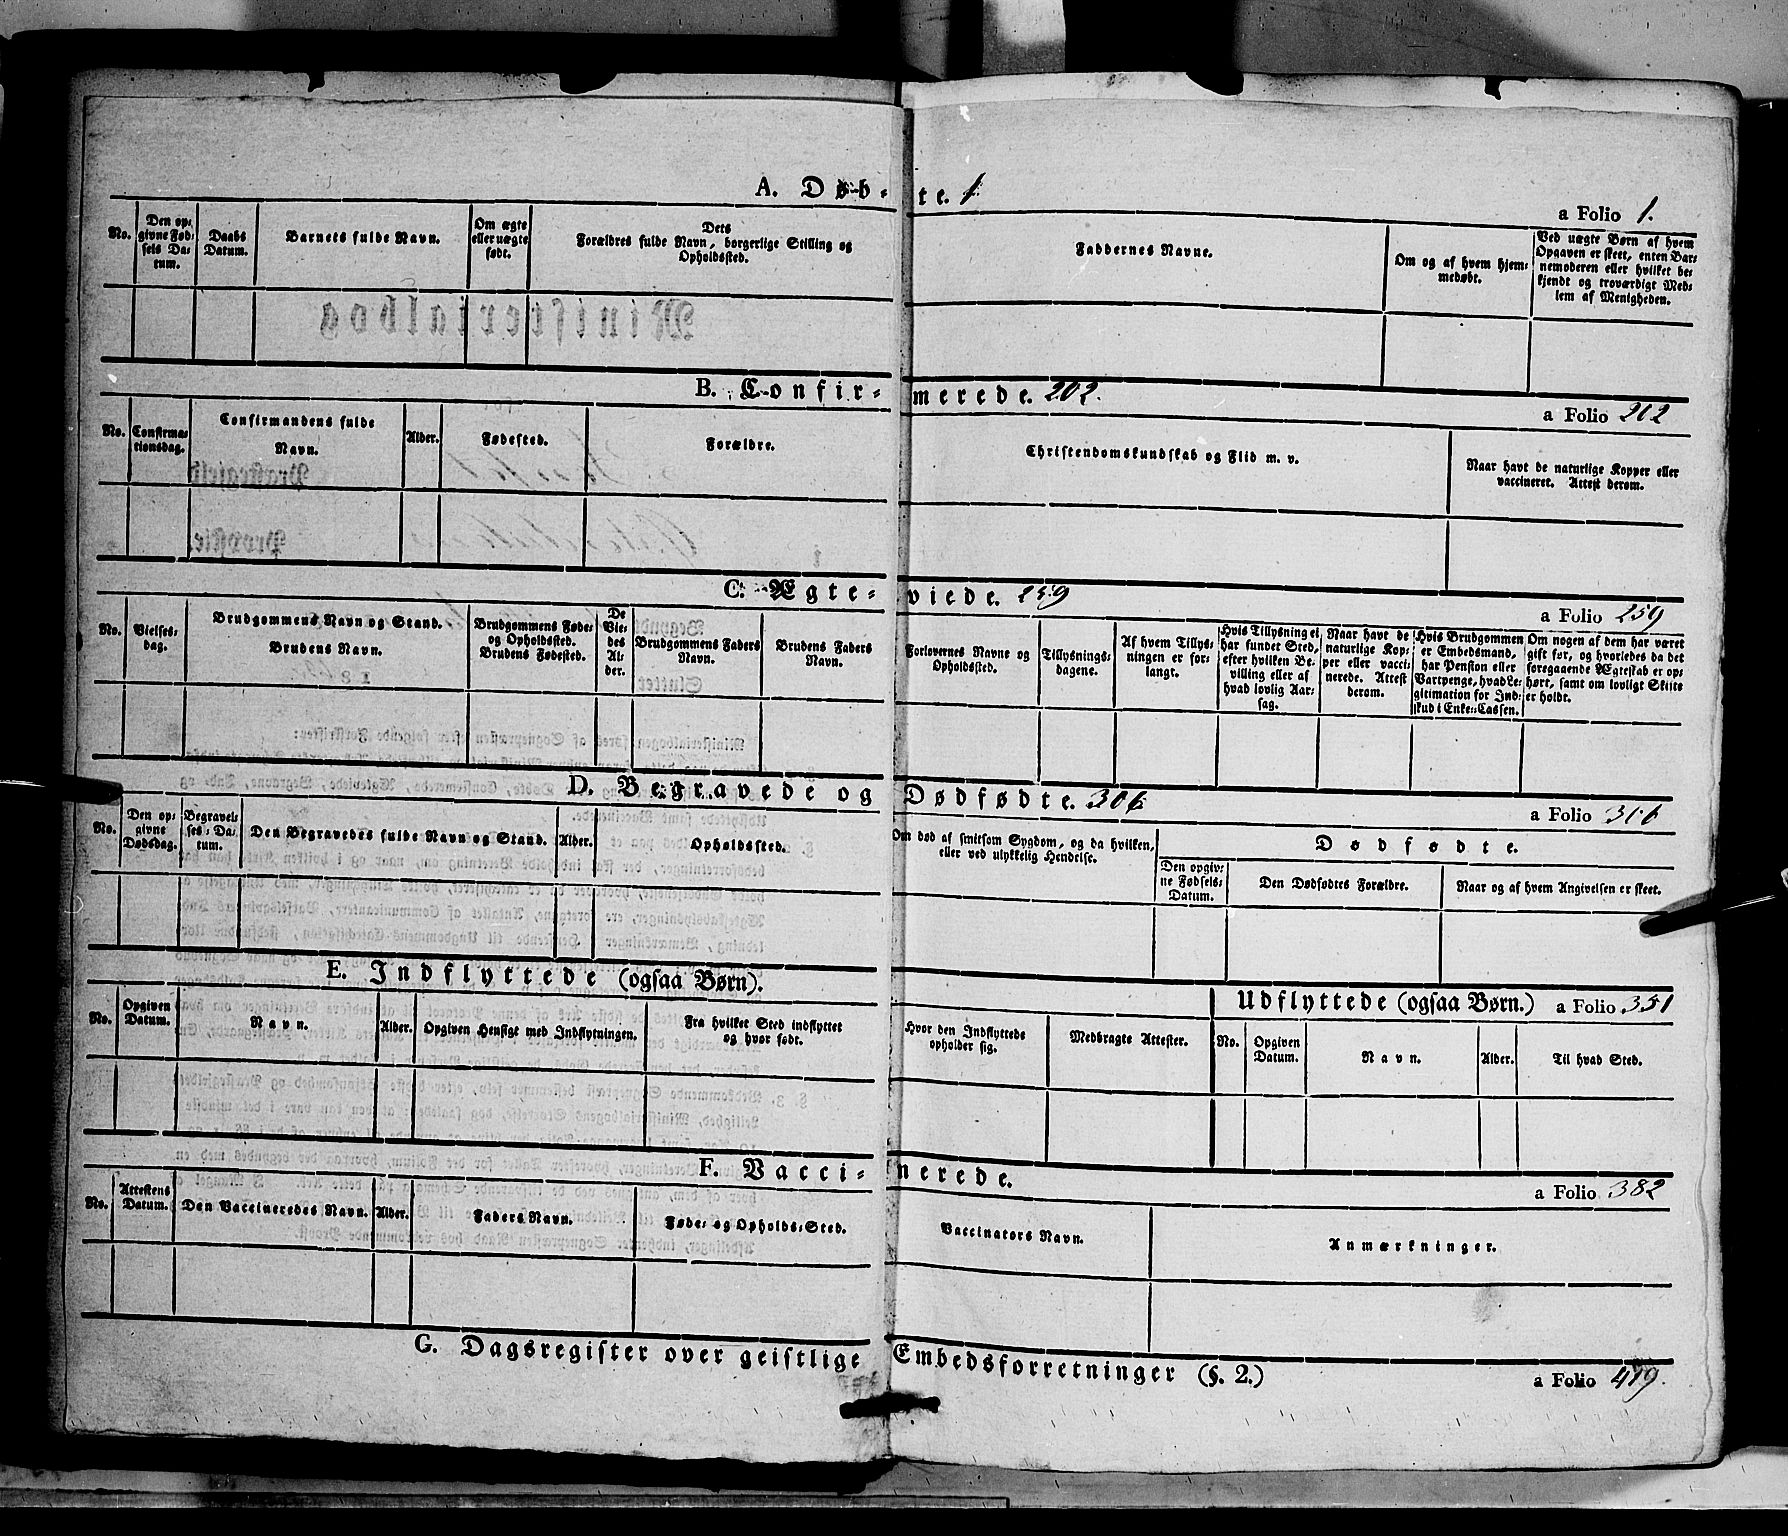 A. Døb-te. 1
a Folio 1.
No.
Den op-
givne Fød-
sels Da-
tum.
Daabs
Datum.
Barnets fulde Navn.
Om ægte
eller uægte
født.
Dets
Forældres fulde Navn, borgerlige Stilling og
Opholdssted.
Faddernes Navne.
Om og af hvem hjem-
medøbt.
Ved uægte Børn af hvem
Opgaven er skeet, enten Bar-
nemoderen eller hvilket be-
kjendt og troværdigt Med-
lem af Menigheden.
B. Confir-merede. 202.
a Folio 202
No.
Confirma-
tionsdag.
Confirmandens fulde
Navn.
Alder.
Fødested.
Forældre.
Christendomskundskab og Flid m. v.
Naar havt de naturlige Kopper eller
vaccineret. Attest derom.
C. Ægte-viede. 259
a Folio 259
No.
Vielses-
dag.
Brudgommens Navn og Stand.
Brudens Navn.
Brudgommens Føde-
og Opholdssted.
Brudens Fødested.
De
Vie-
des
Al-
der.
Brudgommens Faders
Navn.
Brudens Faders
Navn.
Forlovernes Navne og
Opholdssted.
Tillysnings-
dagene.
Af hvem Tillys-
ningen er for-
langt.
Hvis Tillysning ei
har fundet Sted,
efter hvilken Be-
villing eller af
hvad lovlig Aar-
sag.
Naar havt de
naturlige Kop-
per eller vacci-
nerede. Attest
derom.
Hvis Brudgommen
er Embedsmand,
har Pension eller
Vartpenge, hvad Le-
gitimation for Ind-
skud i Enke-Cassen.
Om nogen af dem har været
gift før, og hvorledes da det
foregaaende Ægteskab er op-
hørt, samt om lovligt Skifte
er holdt.
D. Begravede og Dødfødte. 306
a Folio 306
No.
Den op-
givne
Dødsdag.
Begravel-
ses-Da-
tum.
Den Begravedes fulde Navn og Stand.
Alder.
Opholdssted.
Om død af smitsom Sygdom, og da hvilken,
eller ved ulykkelig Hendelse.
Dødfødte.
Den opgiv-
ne Fødsels-
Datum.
Den Dødfødtes Forældre.
Naar og af hvem Angivelsen er skeet.
E. Indflyttede (ogsaa Børn).
Udflyttede (ogsaa Børn.) a Folio 351
No.
Opgiven
Datum.
Navn.
Alder.
Opgiven Hensigt med Indflytningen.
Fra hvilket Sted indflyttet
og hvor født.
Hvor den Indflyttede
opholder sig.
Medbragte Attester.
No.
Opgiven
Datum.
Navn.
Alder.
Til hvad Sted.
F. Vacci-nerede.
a Folio 382
No.
Attestens
Datum.
Den Vaccineredes Navn.
Alder.
Faders Navn.
Føde- og Opholds-Sted.
Vaccinators Navn.
Anmærkninger.
G. Dagsregister over geistlige Embedsforretninger (§. 2.)
a Folio 419.